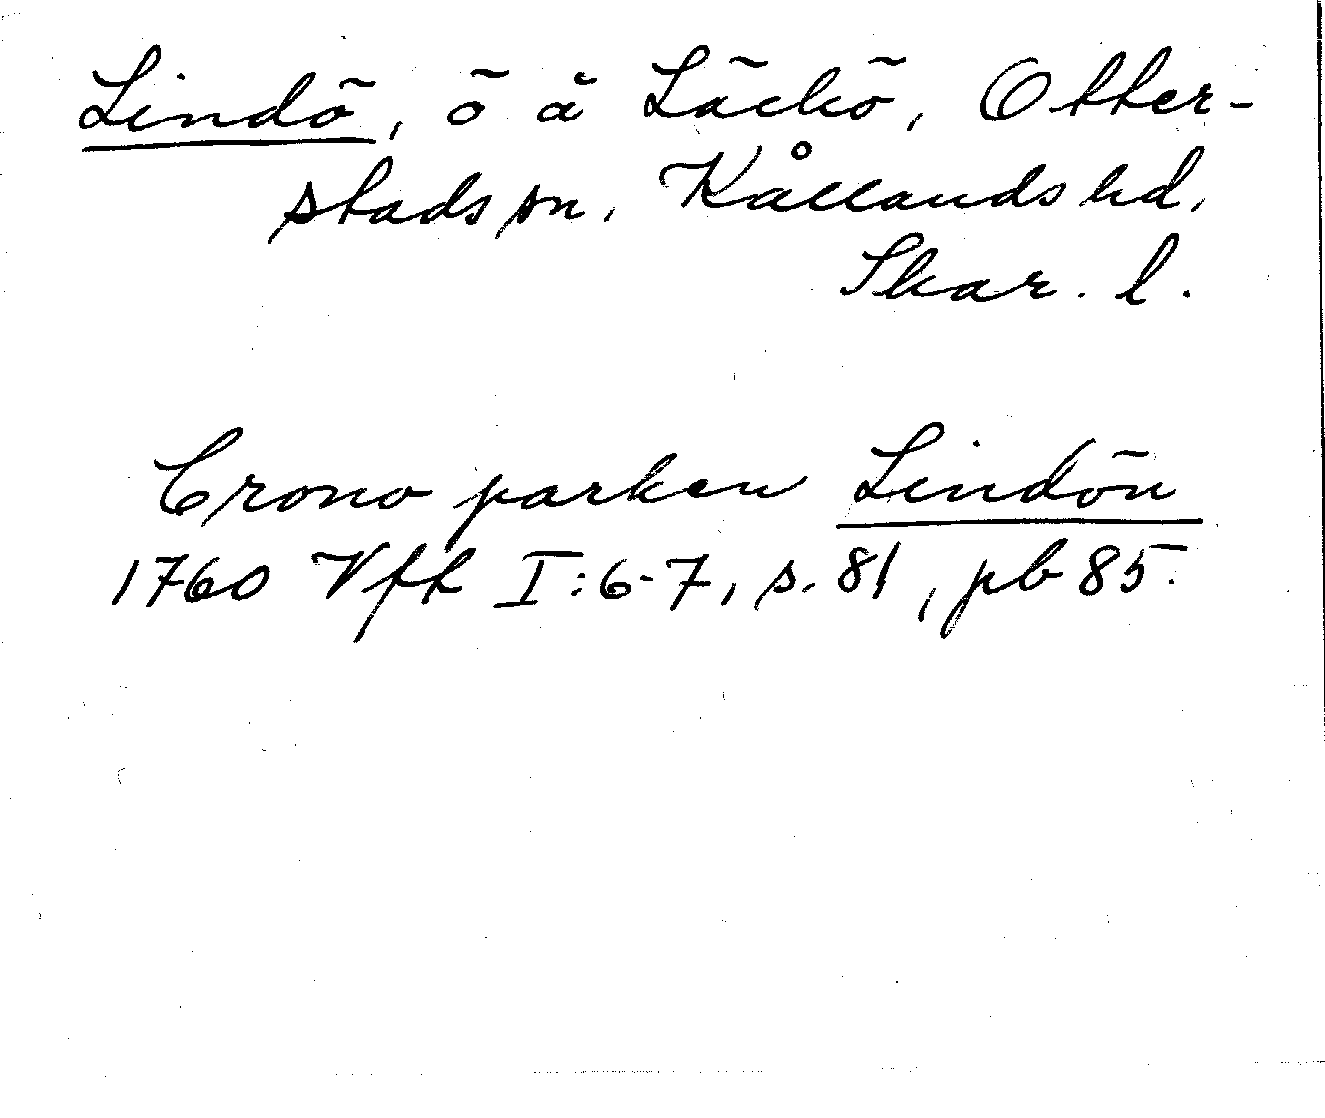 Lindö, ö å Läckö, Otter-
stads sn, Kållands hd,
Skar. l.
Crono parken Lindön
1760 Vft I:6-7, s. 81, pb 85.